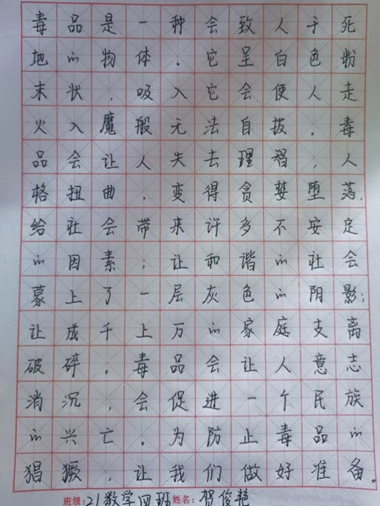 毒品是一种会致人于死
地的物体。它呈白色粉
末状，吸入它会使人走
火入魔般无法自拔。毒
品会让人失去理智，人
格扭曲，变得贪婪堕落，
给社会带来许多不安定
的因素；让和谐的社会
蒙上了一层灰色的阴影；
让成千上万的家庭支离
破碎。毒品会让人意志
消沉，会促进一个民族
的兴亡。为防止毒品的
猖獗，让我们做好准备。
班级：21数学四班姓名：贺俊艳